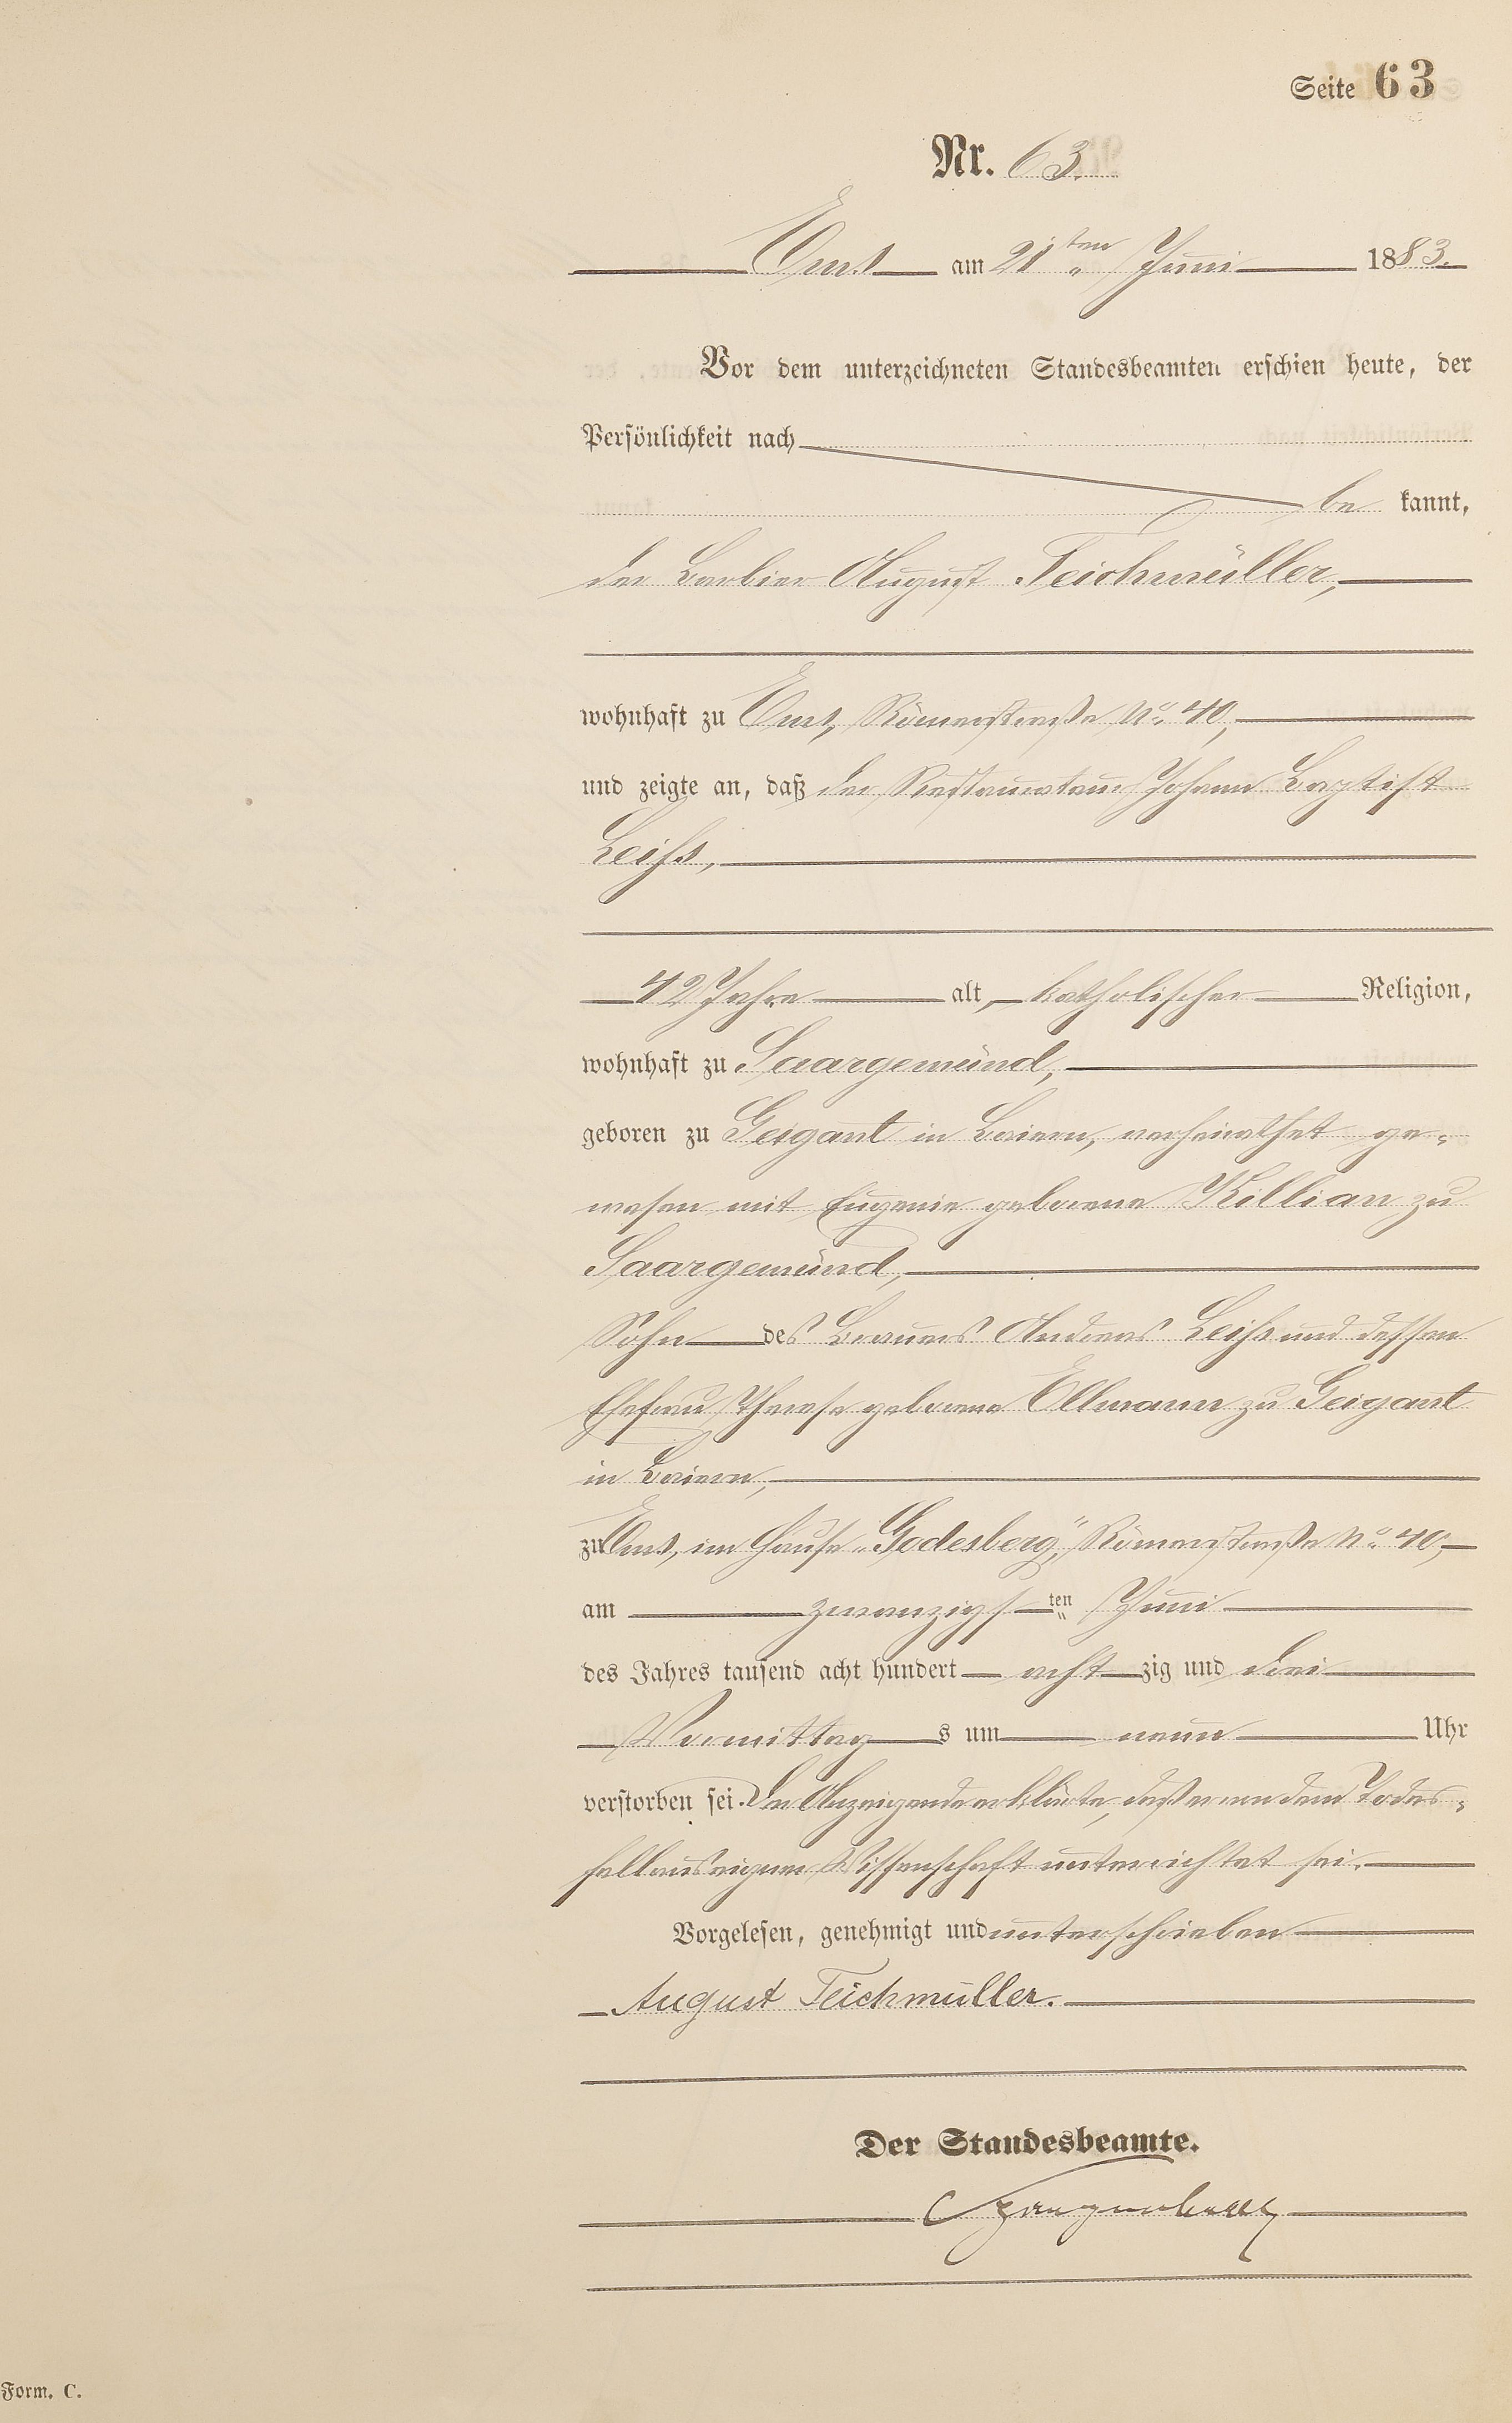 Seite 63
Nr. 63.
Ems am 21ten Juni 1883.
Vor dem unterzeichneten Standesbeamten erschien heute, der
Persönlichkeit nach
be kannt,
der Barbier August Teichmüller,
wohnhaft zu Ems, Römerstraße No. 40,
und zeigte an, daß der Restaurateur Johann Baptist
Leiß,
42 Jahre alt, katholischer Religion,
wohnhaft zu Saargemünd,
geboren zu Geigant in Baiern, verheirathet ge-
wesen mit Eugenie geborene Killian zu
Saargemünd,
Sohn des Brauers Andreas Leiß und dessen
Ehefrau Therese geborene Ellmann zu Geigant
in Baiern,
zu Ems, im Hause „Godesberg", Römerstraße No. 40,
am zwanzigsten Juni
des Jahres tausend acht hundert achtzig und drei
Vormittags um neun Uhr
verstorben sei. Der Anzeigende erklärte, daß er von dem Todes-
fall aus eigener Wissenschaft unterrichtet sei.
Vorgelesen, genehmigt und unterschrieben
August Teichmüller.
Der Standesbeamte.
Form. C.